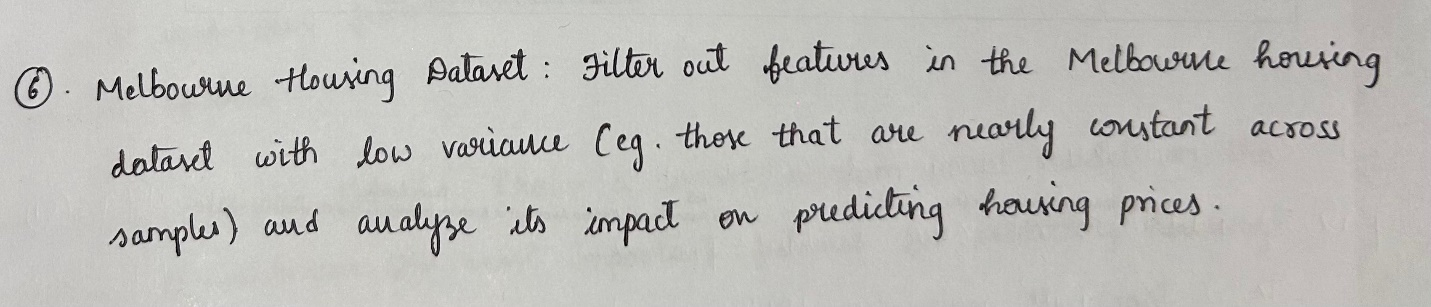 ⑥. Melbourne Housing Dataset : Filter out features in the Melbourne housing
dataset with low variance (eg. those that are nearly constant across
samples) and analyze its impact on predicting housing prices.